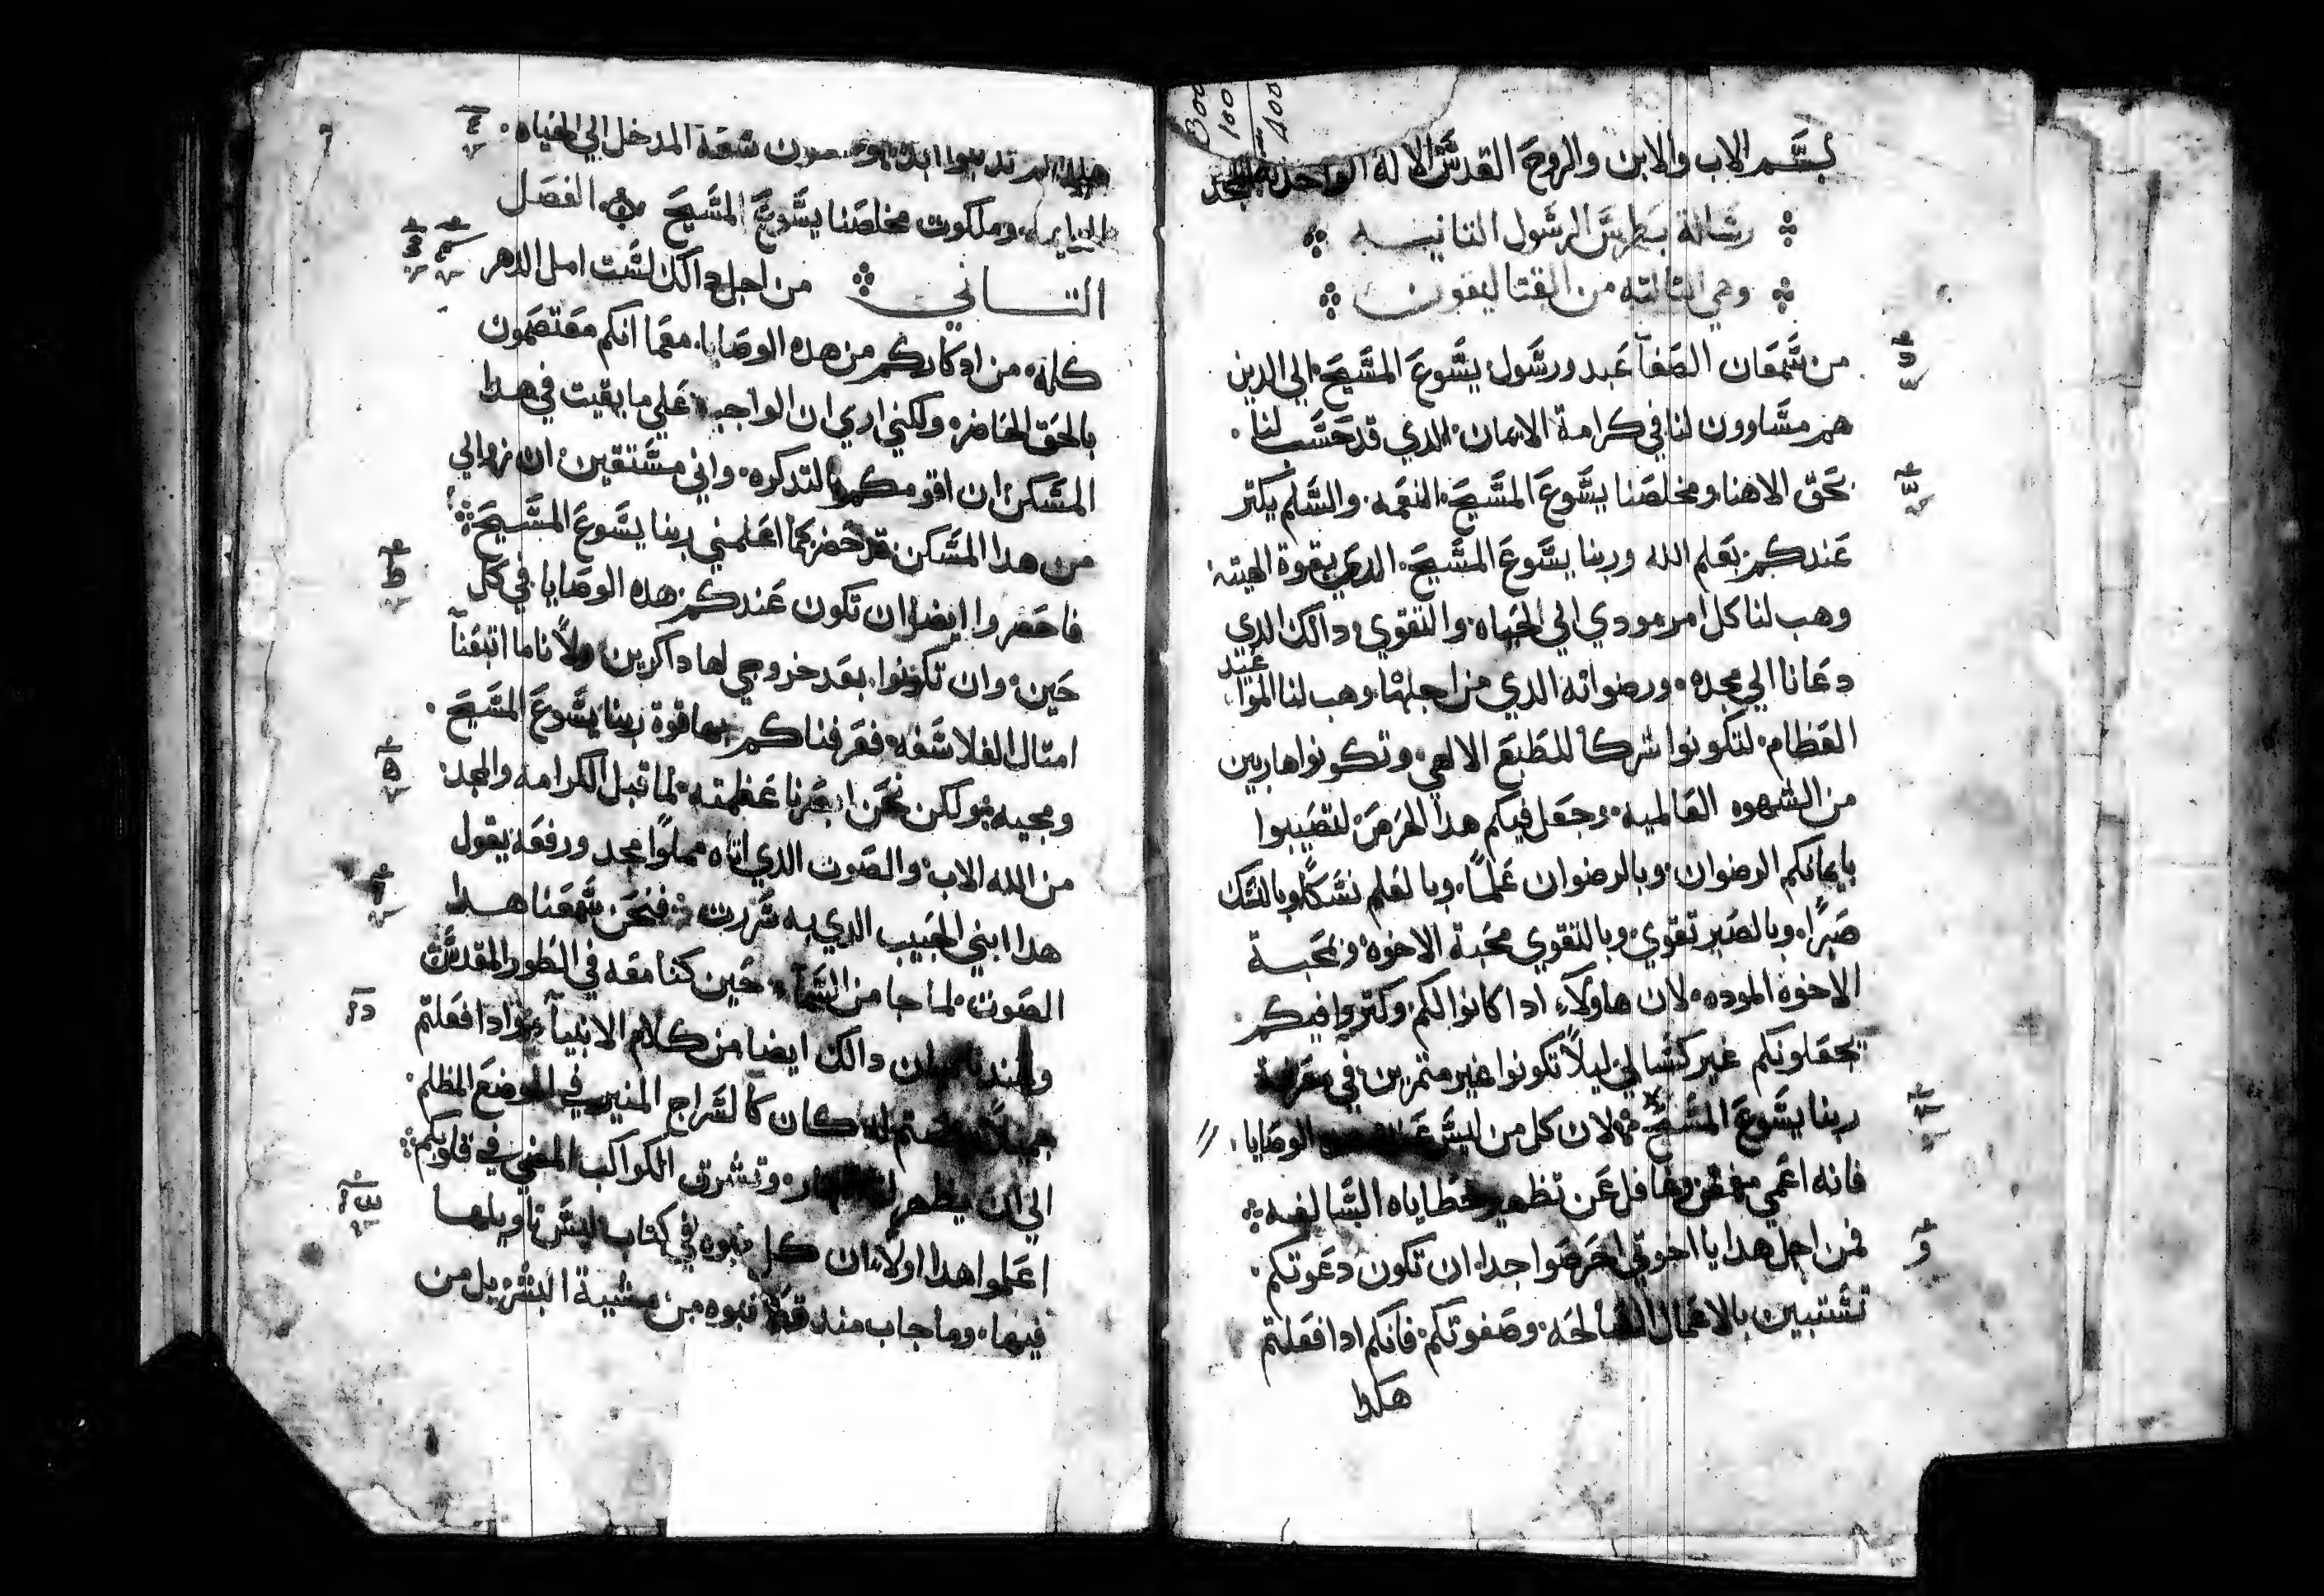 بسم الاب والابن والروح القدس الاله الواحد له المجد
رسالة بطرس الرسول التانيه
وهي التالته من القتاليقون
من شمعان الصفا عبد ورسول يسوع المسيح الي الدين
هم مساوون لنا في كرامة الايمان الدي قد حسب لنا
بحق الاهنا ومخلصنا يسوع المسيح النعمه والسلم يكتر
عندكم بعلم الله وربنا يسوع المسيح الدي بقوة الهيته
وهب لنا كل امر مودي الي الحياه والتقوي دالك الدي
دعانا الي مجده ورضوانه الدي من اجلهما وهب لنا المواعيد
العظام لتكونوا شركا للطبع الالهي وتكونوا هاربين
من الشهوه العالميه وجعل فيكم هدا الحرص لتصيبوا
بايمانكم الرضوان وبالرضوان علما وبالعلم نسكا وبالنسك
صبرا وبالصبر تقوي وبالتقوي محبة الاخوه وبمحبة
الاخوه الموده لان هاولاء ادا كانوا لكم وكتروا فيكم
يجعلونكم غير كسالي ليلا تكونوا غير متمرين في معرفة
ربنا يسوع المسيح لان كل من ليس الوصايا
فانه اعمي مغمض وغافل عن تطهير خطاياه السالفه
فمن اجل هدا يا اخوتي احرصوا جدا ان تكون دعوتكم
تستبين بالاعمال الصالحه وصفوتكم فانكم ادا فعلتم
هكدا
هكدا لم تدنبوا ابدا سعة المدخل الي الحياه
وملكوت مخلصنا يسوع المسيح الفصل
التاني من اجل دالك لست امل الدهر
كله من ادكاركم من هده الوصايا معما انكم معتصمون
بالحق الحاضر ولكني اري ان الواجب علي ما بقيت في هدا
المسكن ان اقومكم بالتدكره واني مستقين ان زوالي
من هدا المسكن قد حضر كما اعلمني ربنا يسوع المسيح
فاحضروا ايضا ان تكون عندكم هده الوصايا في كل
حين وان تكونوا بعد خروجي لها داكرين ولاناما اتبعنا
امتال الفلاسفه فعرفناكم بها قوة ربنا يسوع المسيح
ومجيه ولكن نحن ابصرنا عظمته لما قبل الكرامه والمجد
من الله الاب والصوت الدي اتاه مملوا مجد ورفعه يقول
هدا ابني الحبيب الدي به سررت فنحن سمعنا هدا
الصوت لما جا من السما حين كنا معه في الطور المقدس
وعندنا دالك ايضا من كلام الانبيا وادا فعلتم
كان كالسراج المنير في الموضع المظلم
الي ان يظهر النهار وتشرق الكواكب المضي في قلوبكم
اعلموا هدا اولا ان كل نبوه في كتاب ليس تاويلها
فيها وما جات مند قط نبوه من مشية البشر بل من